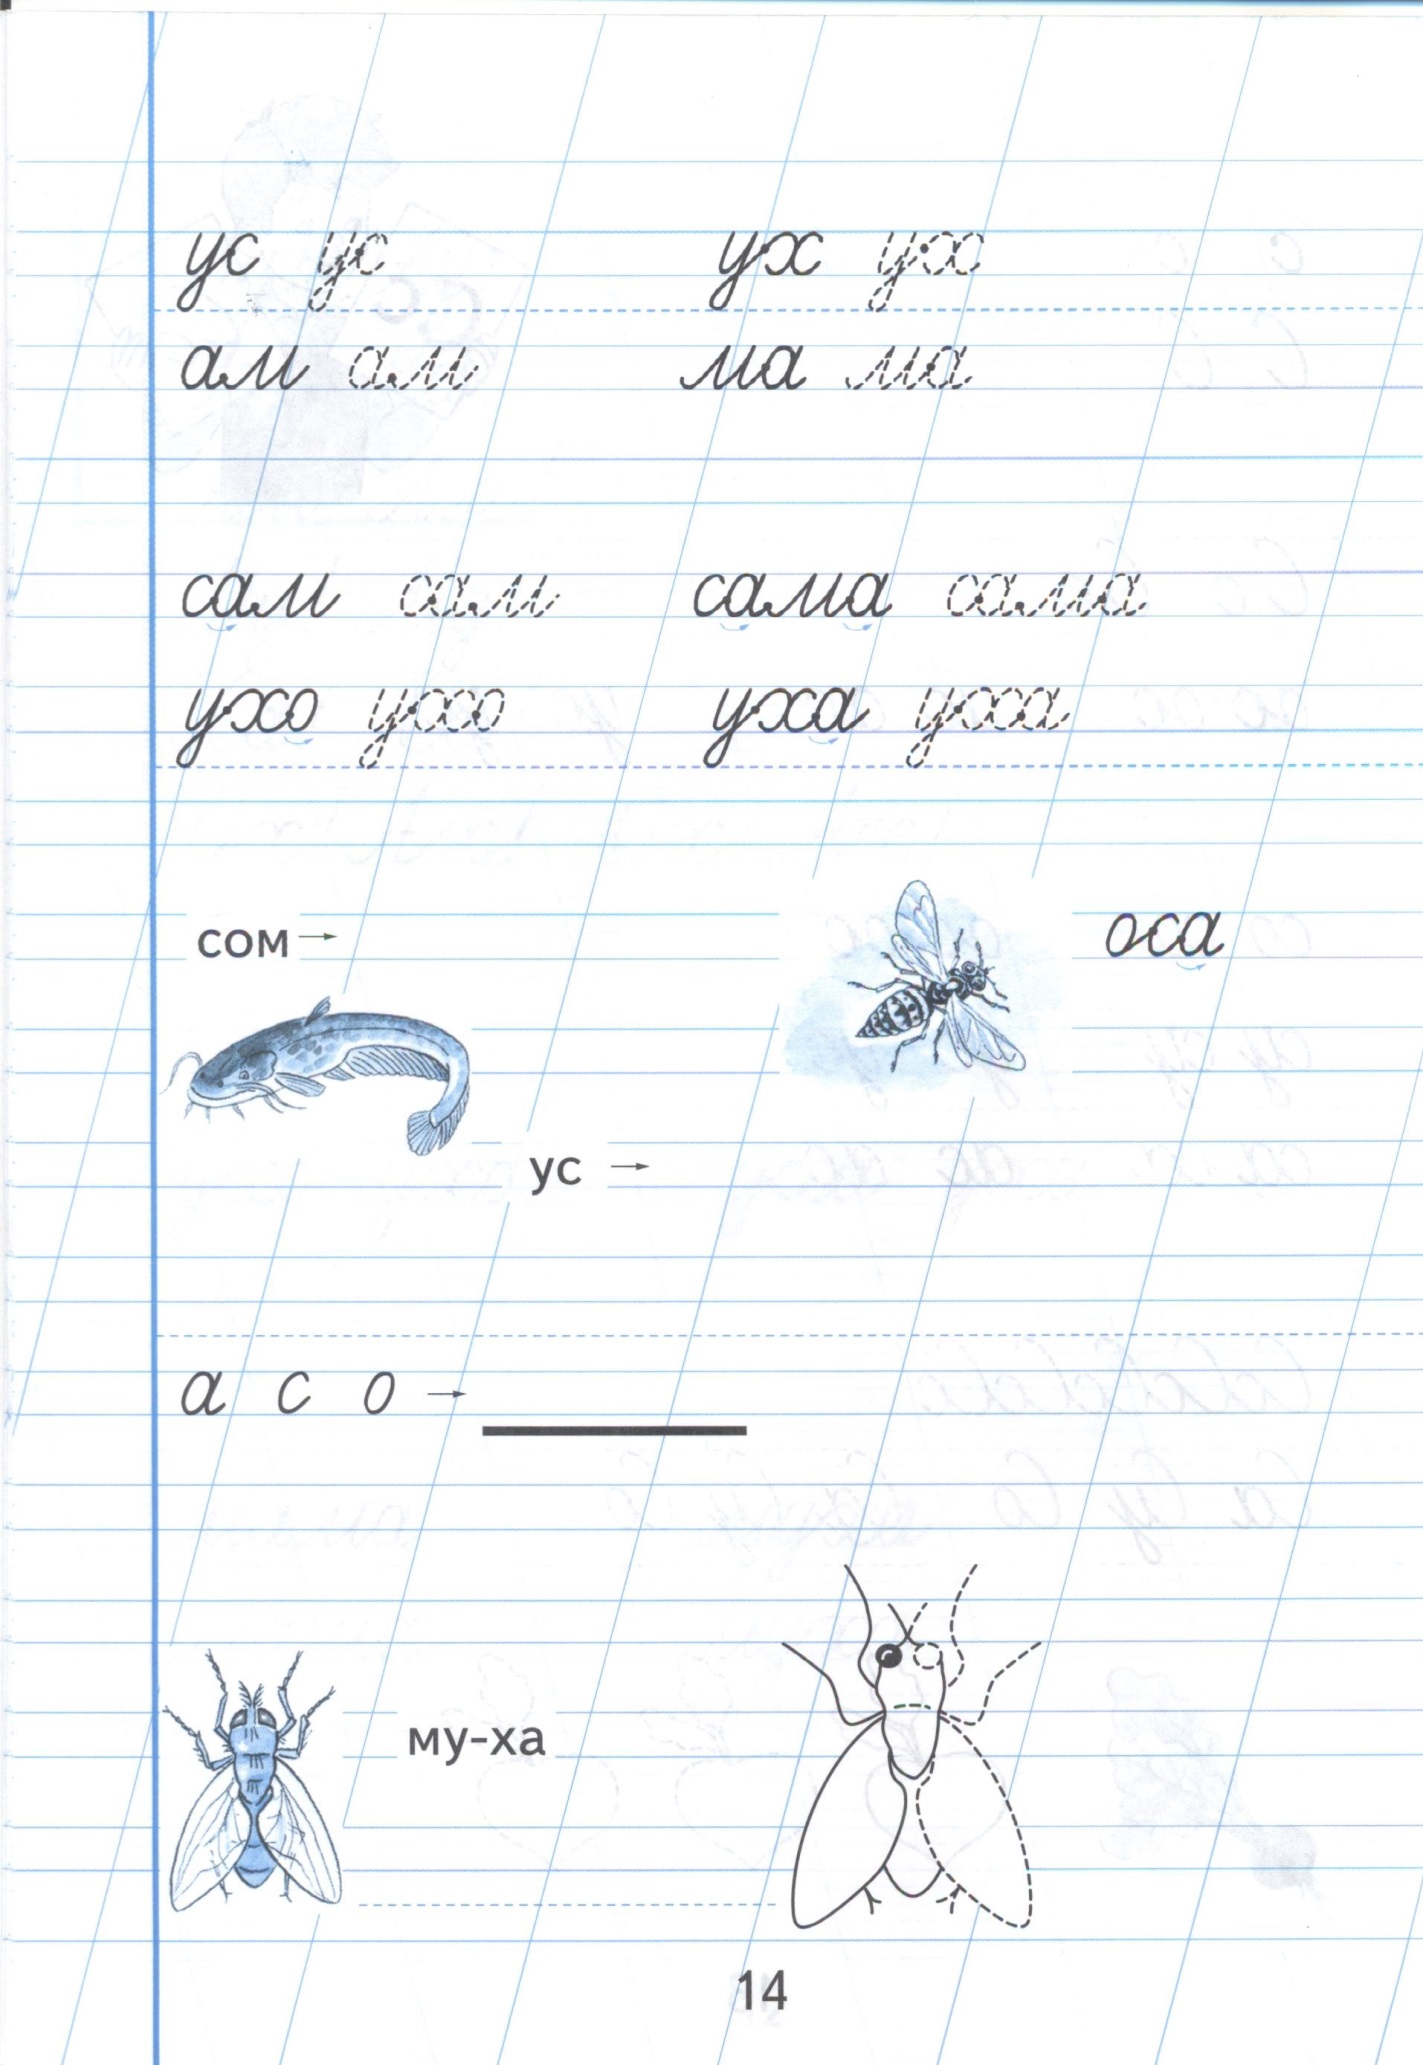 ус ус ух ух
ам ам ма ма
сам сам сама сама
ухо ухо уха уха
сом → оса
ус →
а с о →
му-ха
14